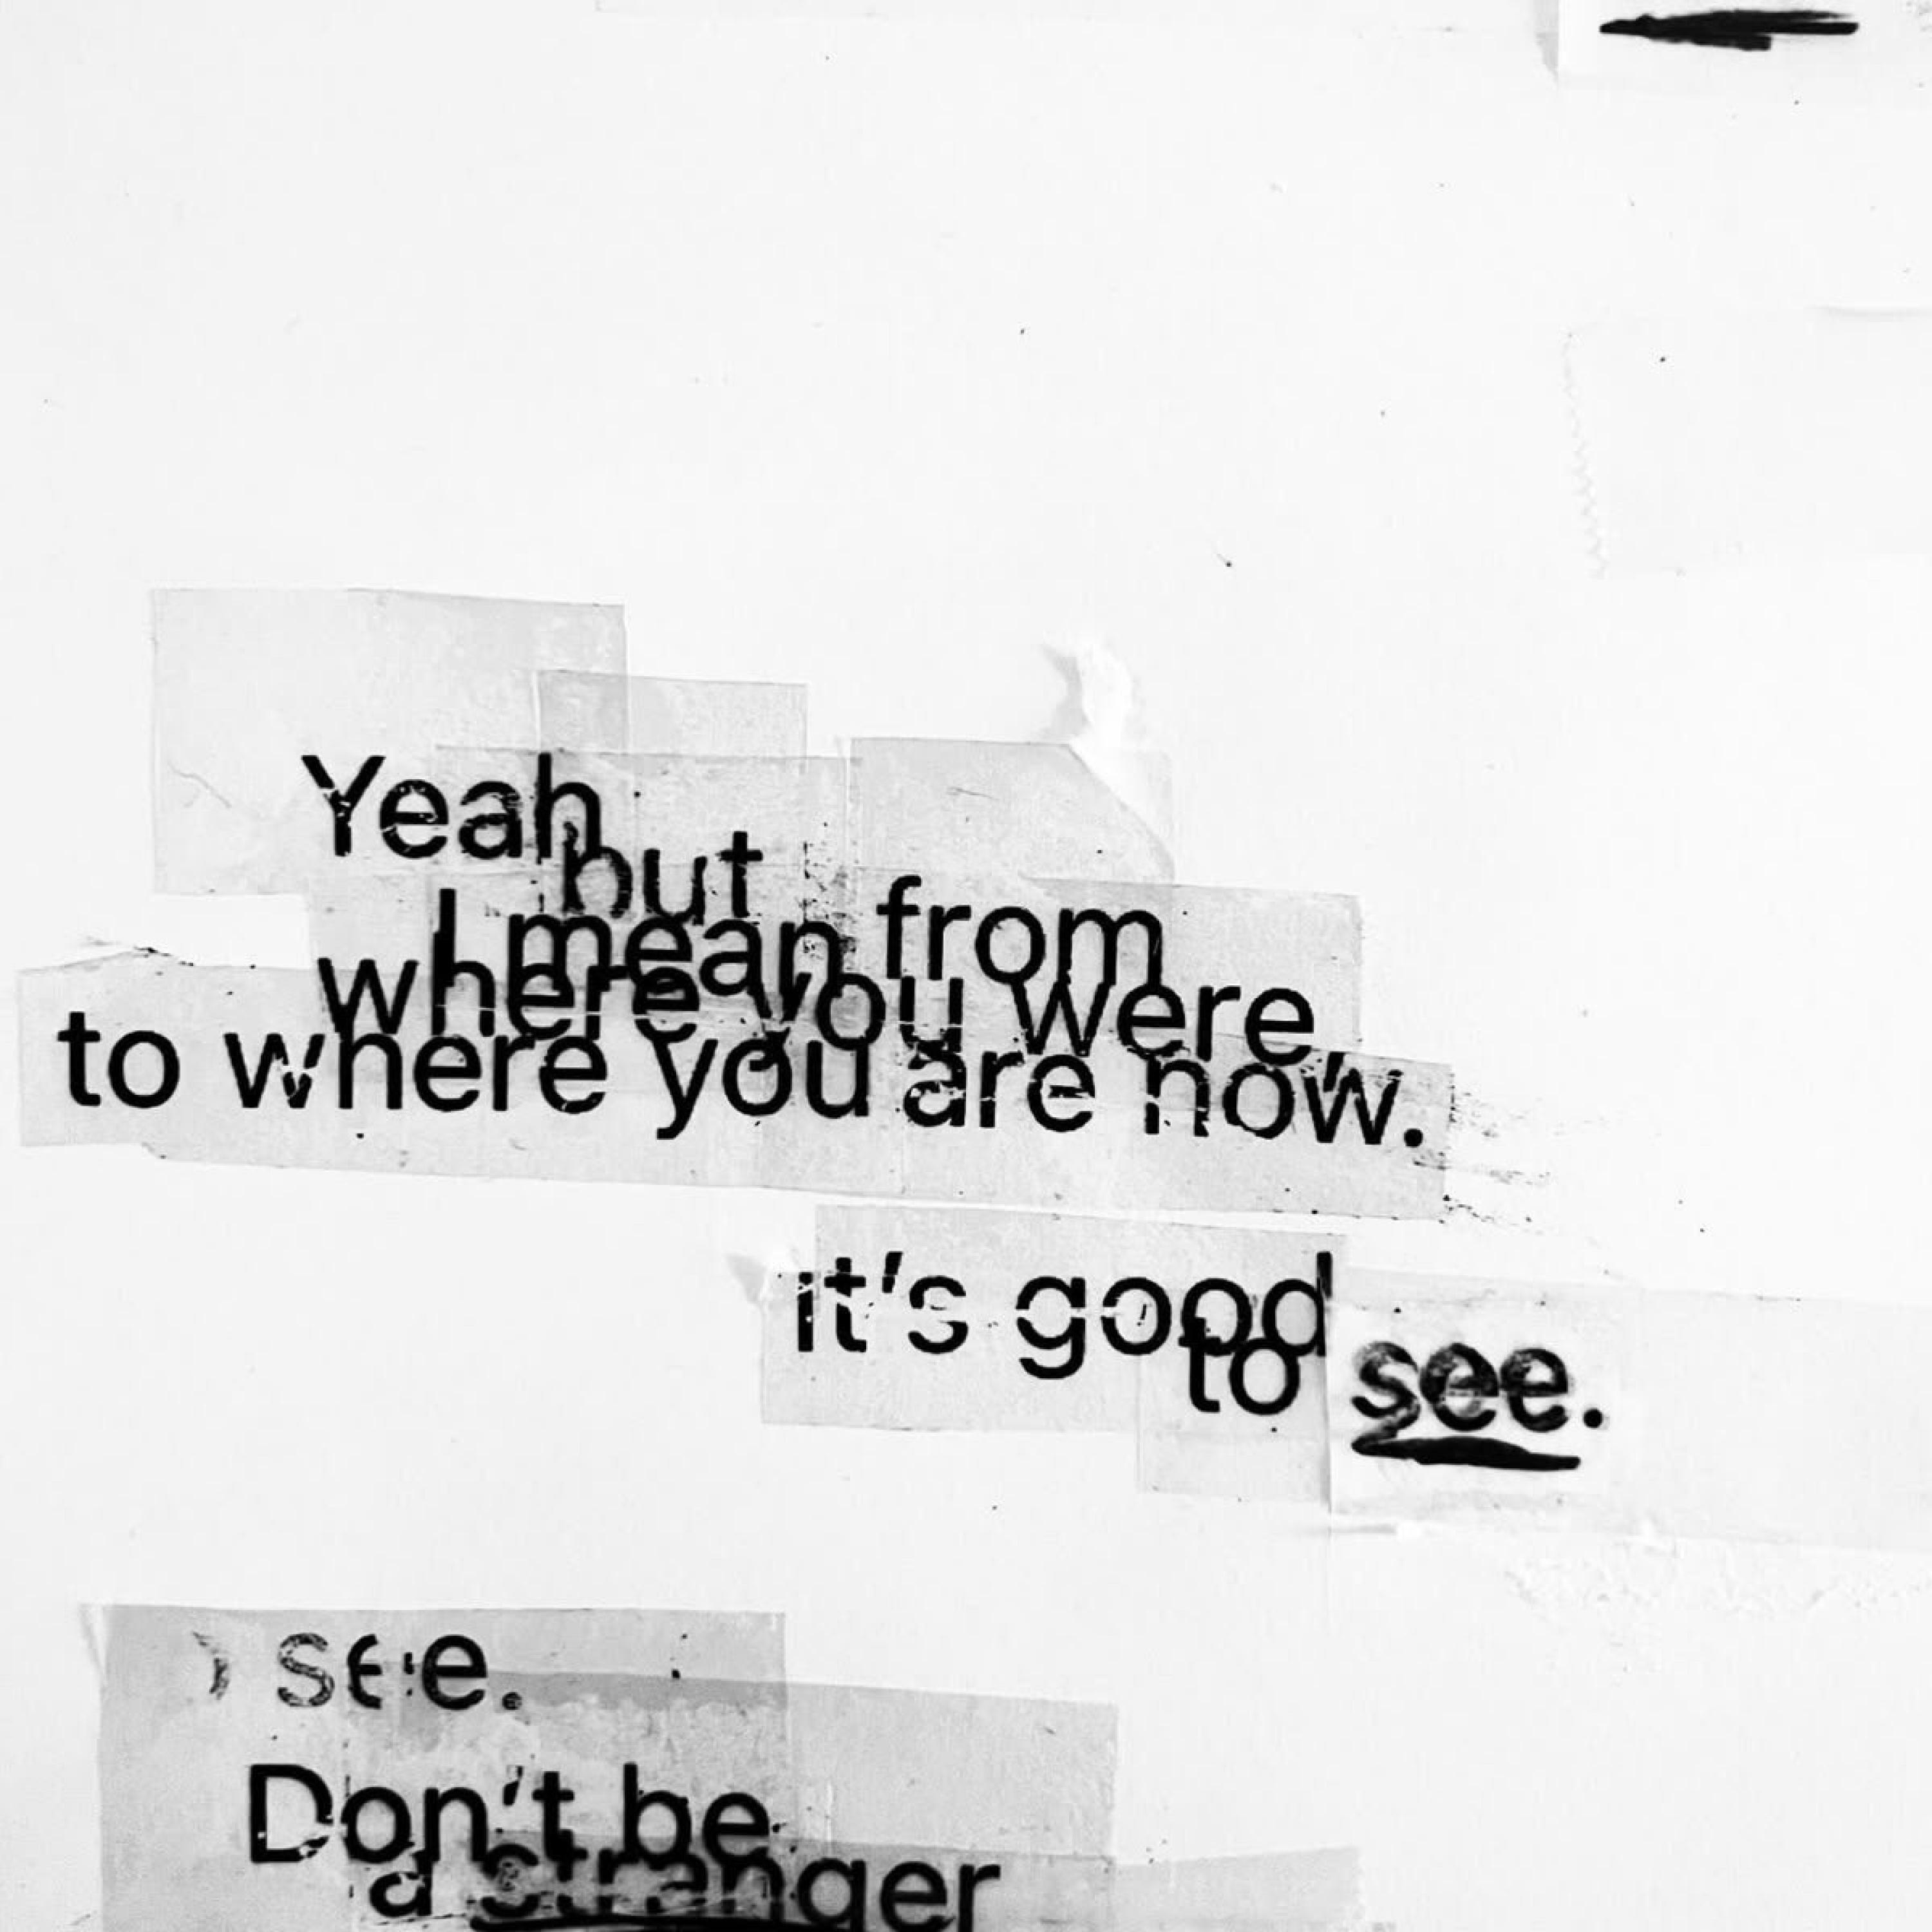 Yeah
but
I mean from
where you were,
to where you are now.
it's good
to see.
see.
Don't be
a stranger